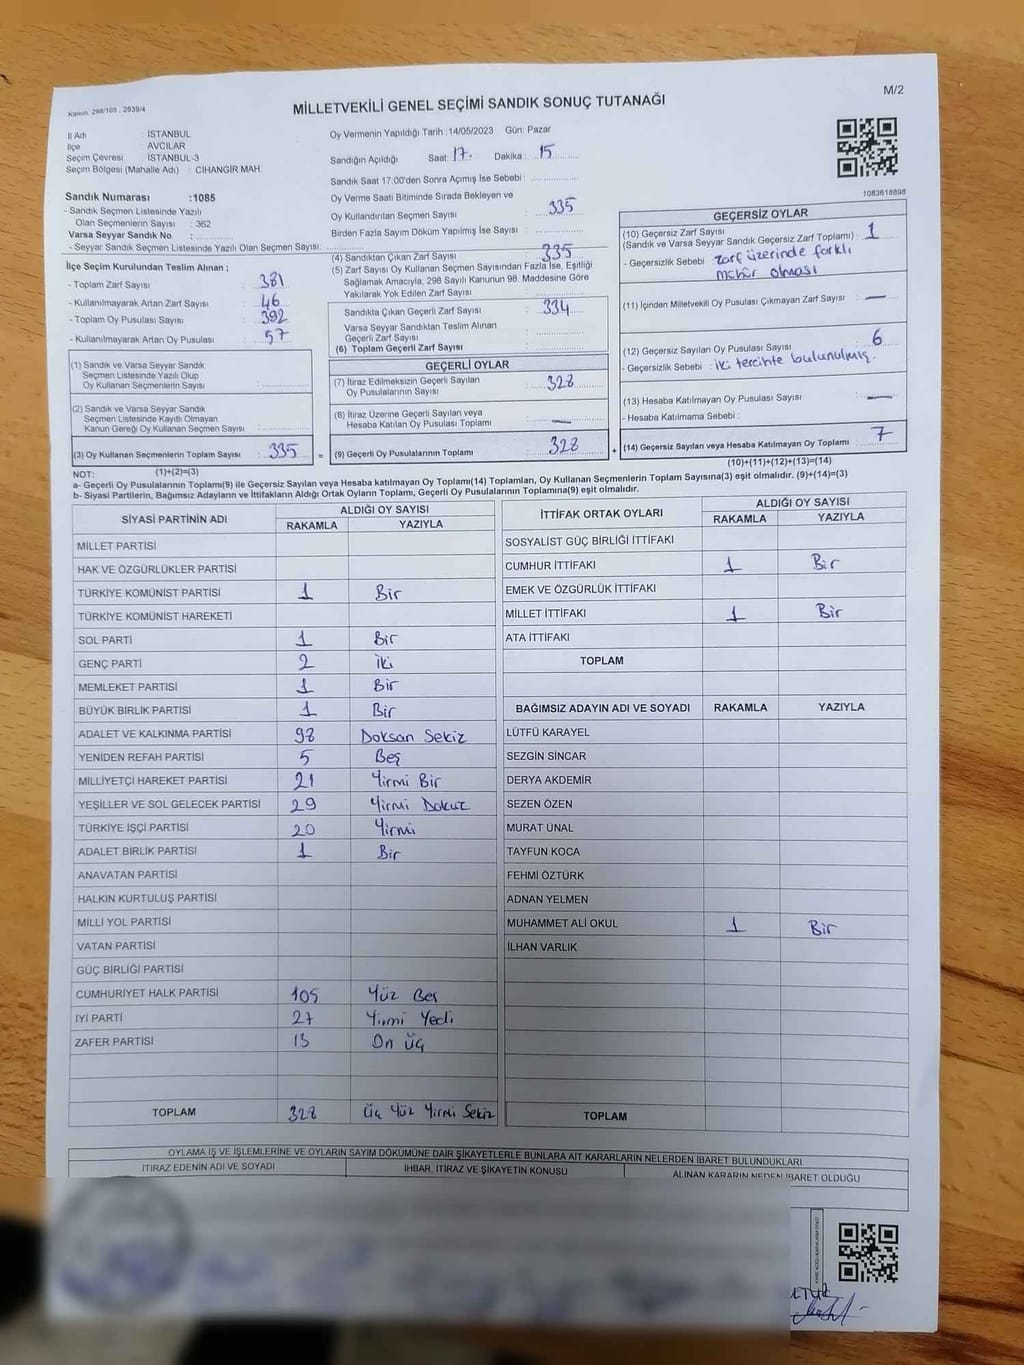 Kanun: 298/105 , 2839/4
MİLLETVEKİLİ GENEL SEÇİMİ SANDIK SONUÇ TUTANAĞI
M/2
İl Adı : İSTANBUL
İlçe : AVCILAR
Seçim Çevresi : İSTANBUL-3
Seçim Bölgesi (Mahalle Adı) : CİHANGİR MAH.
Sandık Numarası :1085
- Sandık Seçmen Listesinde Yazılı
Olan Seçmenlerin Sayısı : 362
Varsa Seyyar Sandık No :
- Seyyar Sandık Seçmen Listesinde Yazılı Olan Seçmen Sayısı:
Oy Vermenin Yapıldığı Tarih :14/05/2023 Gün: Pazar
Sandığın Açıldığı Saat : 17. Dakika : 15
Sandık Saat 17:00'den Sonra Açımış İse Sebebi :
Oy Verme Saati Bitiminde Sırada Bekleyen ve
Oy Kullandırılan Seçmen Sayısı : 335
Birden Fazla Sayım Döküm Yapılmış İse Sayısı :
(4) Sandıktan Çıkan Zarf Sayısı : 335
(5) Zarf Sayısı Oy Kullanan Seçmen Sayısından Fazla İse, Eşitliği
Sağlamak Amacıyla, 298 Sayılı Kanunun 98. Maddesine Göre
Yakılarak Yok Edilen Zarf Sayısı :
İlçe Seçim Kurulundan Teslim Alınan ;
- Toplam Zarf Sayısı : 381
- Kullanılmayarak Artan Zarf Sayısı : 46
- Toplam Oy Pusulası Sayısı : 392
- Kullanılmayarak Artan Oy Pusulası : 57
(1) Sandık ve Varsa Seyyar Sandık
Seçmen Listesinde Yazılı Olup
Oy Kullanan Seçmenlerin Sayısı :
(2) Sandık ve Varsa Seyyar Sandık
Seçmen Listesinde Kayıtlı Olmayan
Kanun Gereği Oy Kullanan Seçmen Sayısı :
(3) Oy Kullanan Seçmenlerin Toplam Sayısı : 335
(1)+(2)=(3)
Sandıkta Çıkan Geçerli Zarf Sayısı : 334
Varsa Seyyar Sandıktan Teslim Alınan
Geçerli Zarf Sayısı :
(6) Toplam Geçerli Zarf Sayısı :
GEÇERLİ OYLAR
(7) İtiraz Edilmeksizin Geçerli Sayılan
Oy Pusulalarının Sayısı : 328
(8) İtiraz Üzerine Geçerli Sayılan veya
Hesaba Katılan Oy Pusulası Toplamı : —
= (9) Geçerli Oy Pusulalarının Toplamı : 328
1083618898
GEÇERSİZ OYLAR
(10) Geçersiz Zarf Sayısı
(Sandık ve Varsa Seyyar Sandık Geçersiz Zarf Toplamı) : 1
- Geçersizlik Sebebi : zarf üzerinde farklı
mühür olması
(11) İçinden Milletvekili Oy Pusulası Çıkmayan Zarf Sayısı : —
(12) Geçersiz Sayılan Oy Pusulası Sayısı : 6
- Geçersizlik Sebebi : iki tercihte bulunulmuş.
(13) Hesaba Katılmayan Oy Pusulası Sayısı : —
- Hesaba Katılmama Sebebi :
+ (14) Geçersiz Sayılan veya Hesaba Katılmayan Oy Toplamı : 7
(10)+(11)+(12)+(13)=(14)
NOT:
a- Geçerli Oy Pusulalarının Toplamı(9) ile Geçersiz Sayılan veya Hesaba Katılmayan Oy Toplamı(14) Toplamları, Oy Kullanan Seçmenlerin Toplam Sayısına(3) eşit olmalıdır. (9)+(14)=(3)
b- Siyasi Partilerin, Bağımsız Adayların ve İttifakların Aldığı Ortak Oyların Toplamı, Geçerli Oy Pusulalarının Toplamına(9) eşit olmalıdır.
SİYASİ PARTİNİN ADI ALDIĞI OY SAYISI
RAKAMLA YAZIYLA
MİLLET PARTİSİ
HAK VE ÖZGÜRLÜKLER PARTİSİ
TÜRKİYE KOMÜNİST PARTİSİ 1 Bir
TÜRKİYE KOMÜNİST HAREKETİ
SOL PARTİ 1 Bir
GENÇ PARTİ 2 İki
MEMLEKET PARTİSİ 1 Bir
BÜYÜK BİRLİK PARTİSİ 1 Bir
ADALET VE KALKINMA PARTİSİ 98 Doksan Sekiz
YENİDEN REFAH PARTİSİ 5 Beş
MİLLİYETÇİ HAREKET PARTİSİ 21 Yirmi Bir
YEŞİLLER VE SOL GELECEK PARTİSİ 29 Yirmi Dokuz
TÜRKİYE İŞÇİ PARTİSİ 20 Yirmi
ADALET BİRLİK PARTİSİ 1 Bir
ANAVATAN PARTİSİ
HALKIN KURTULUŞ PARTİSİ
MİLLİ YOL PARTİSİ
VATAN PARTİSİ
GÜÇ BİRLİĞİ PARTİSİ
CUMHURİYET HALK PARTİSİ 105 Yüz Beş
İYİ PARTİ 27 Yirmi Yedi
ZAFER PARTİSİ 13 On Üç
TOPLAM 328 Üç Yüz Yirmi Sekiz
İTTİFAK ORTAK OYLARI ALDIĞI OY SAYISI
RAKAMLA YAZIYLA
SOSYALİST GÜÇ BİRLİĞİ İTTİFAKI
CUMHUR İTTİFAKI 1 Bir
EMEK VE ÖZGÜRLÜK İTTİFAKI
MİLLET İTTİFAKI 1 Bir
ATA İTTİFAKI
TOPLAM
BAĞIMSIZ ADAYIN ADI VE SOYADI RAKAMLA YAZIYLA
LÜTFÜ KARAYEL
SEZGİN SİNCAR
DERYA AKDEMİR
SEZEN ÖZEN
MURAT ÜNAL
TAYFUN KOCA
FEHMİ ÖZTÜRK
ADNAN YELMEN
MUHAMMET ALİ OKUL 1 Bir
İLHAN VARLIK
TOPLAM
OYLAMA İŞ VE İŞLEMLERİNE VE OYLARIN SAYIM DÖKÜMÜNE DAİR ŞİKAYETLERLE BUNLARA AİT KARARLARIN NELERDEN İBARET BULUNDUKLARI
İTİRAZ EDENİN ADI VE SOYADI İHBAR, İTİRAZ VE ŞİKAYETİN KONUSU ALINAN KARARIN NEDEN İBARET OLDUĞU